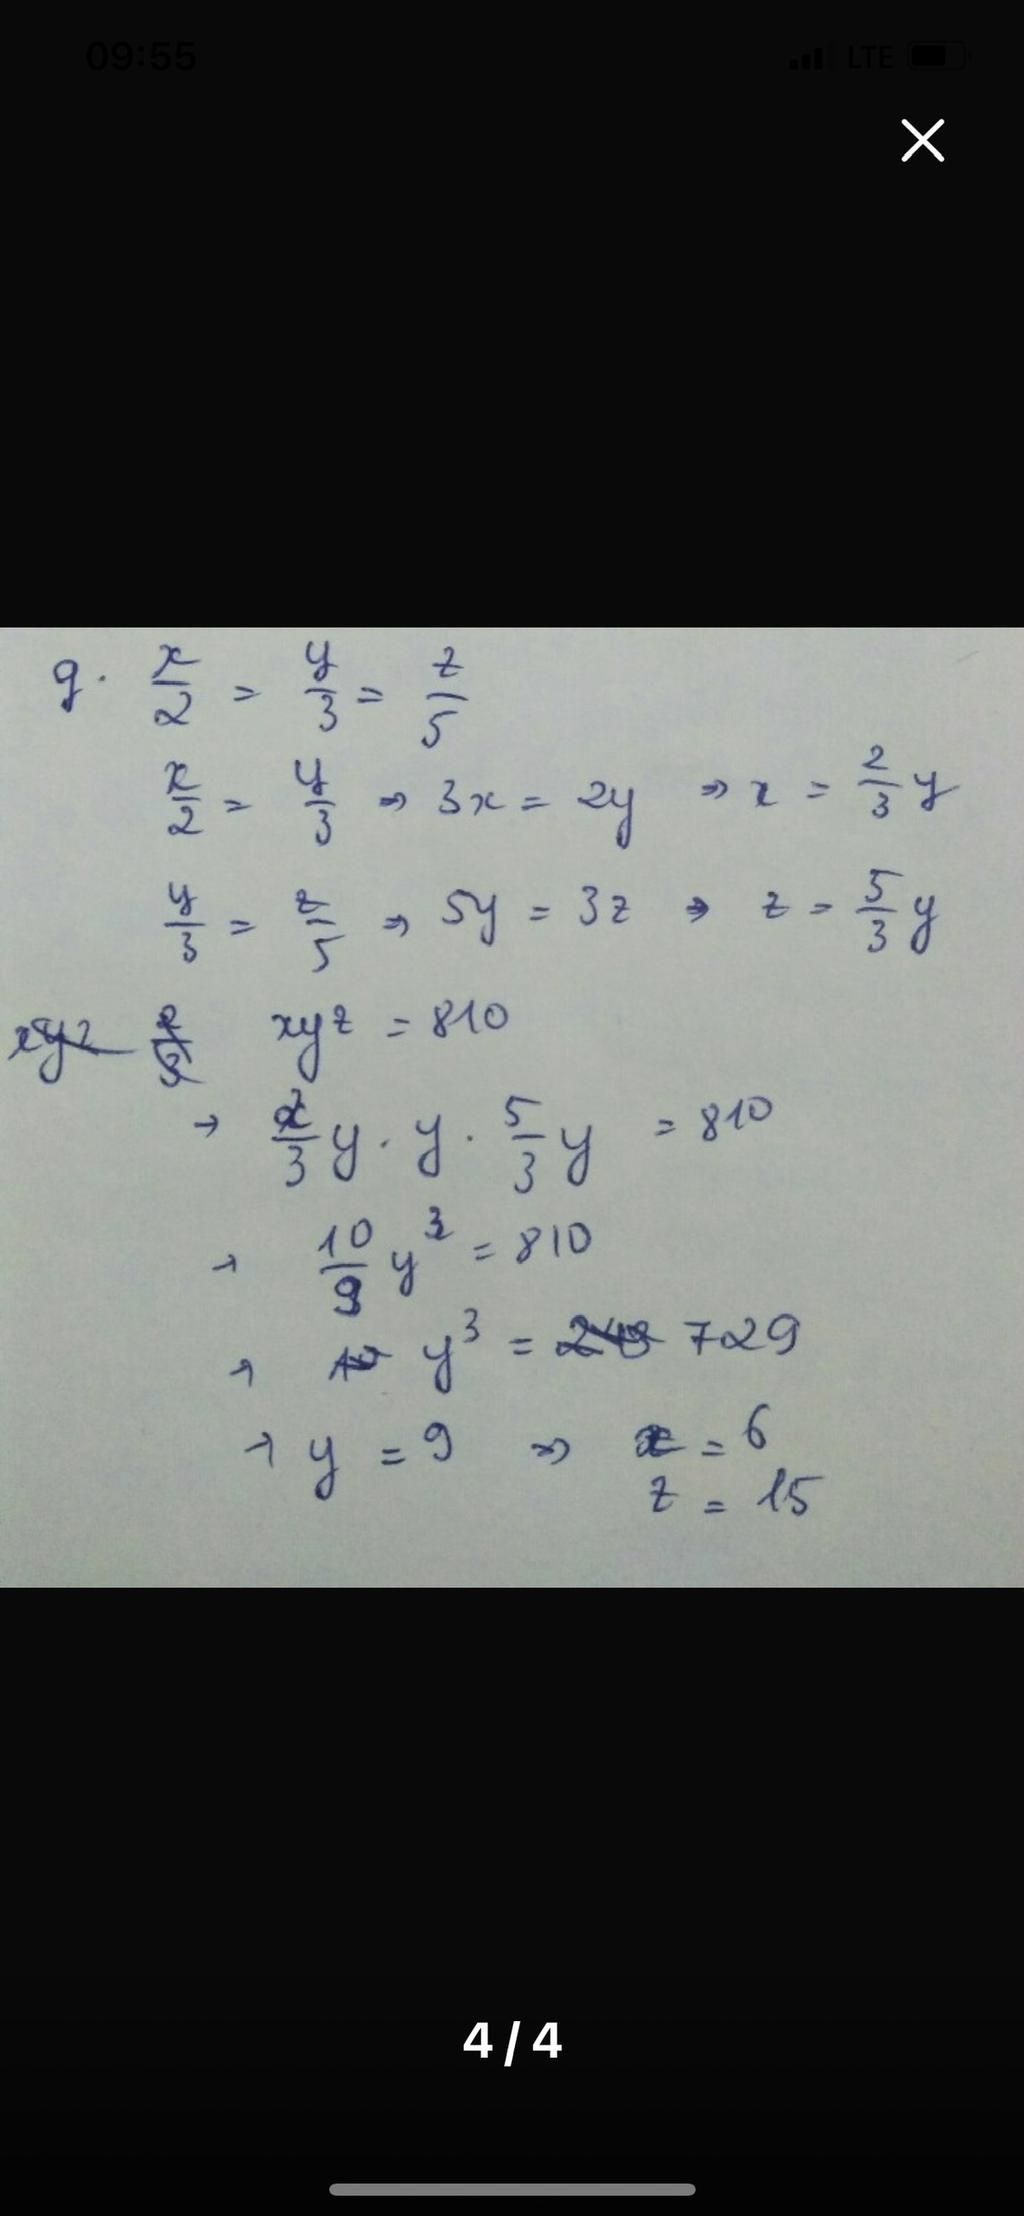 09:55 LTE
g. x/2 = y/3 = z/5
x/2 = y/3 ⇒ 3x = 2y ⇒ x = 2/3 y
y/3 = z/5 ⇒ 5y = 3z ⇒ z = 5/3 y
xyz = 810
→ 2/3 y . y . 5/3 y = 810
→ 10/9 y³ = 810
→ y³ = 729
→ y = 9 ⇒ x = 6
z = 15
4/4